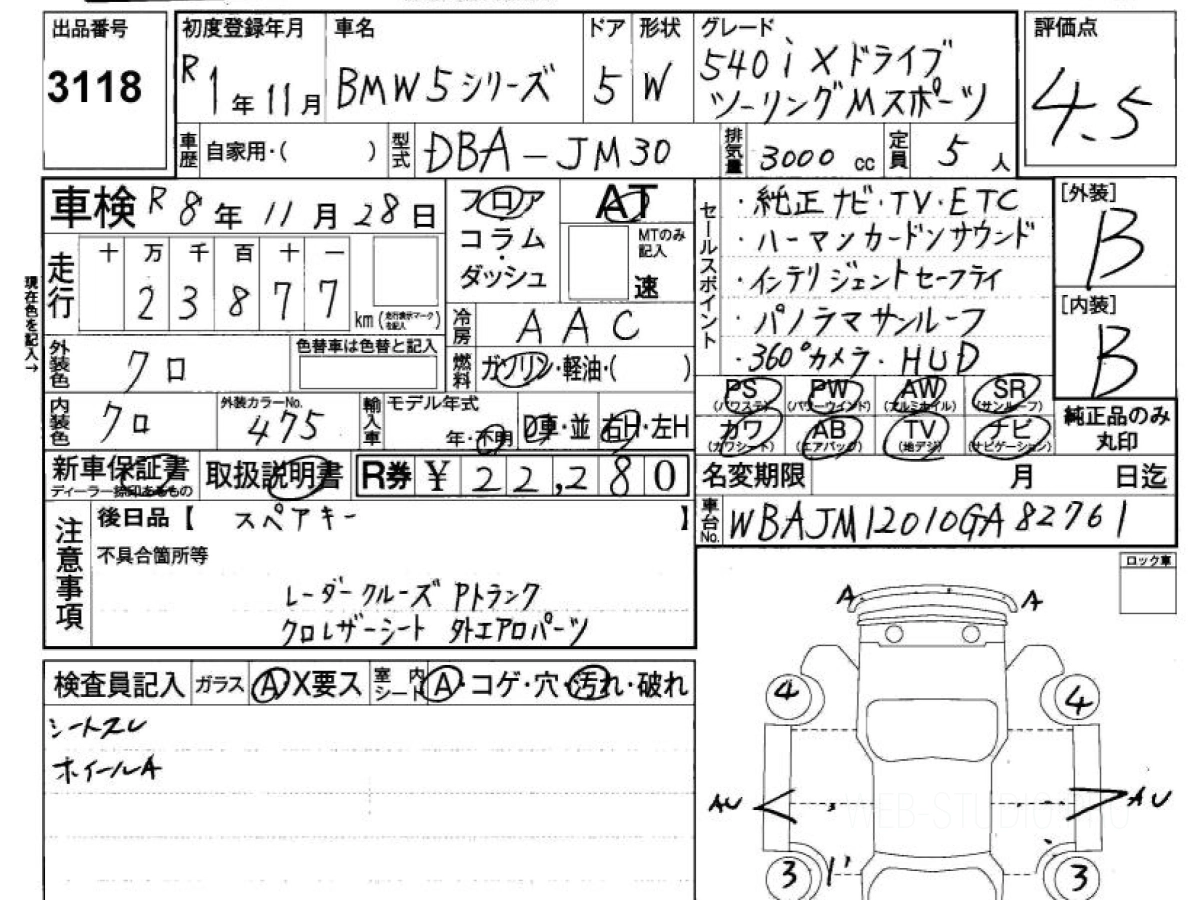 出品番号
3118
初度登録年月
R1年11月
車名
BMW5シリーズ
ドア
5
形状
W
グレード
540i Xドライブ
ツーリングMスポーツ
評価点
4.5
車歴 自家用・( )
型式 DBA-JM30
排気量 3000 cc
定員 5 人
車検 R8年11月28日
フロア
コラム
・
ダッシュ
AT
MTのみ記入
速
走行
十 万 千 百 十 一
2 3 8 7 7
km (走行表示マークを記入)
現在色を記入→
冷房 AAC
燃料 ガソリン・軽油・( )
外装色 クロ
色替車は色替と記入
内装色 クロ
外装カラーNo.
475
輸入車
モデル年式
年・不明
D車・並
右H・左H
セールスポイント
・純正ナビ・TV・ETC
・ハーマンカードンサウンド
・インテリジェントセーフティ
・パノラマサンルーフ
・360°カメラ・HUD
[外装]
B
[内装]
B
PS (パワステ)
PW (パワーウインド)
AW (アルミホイル)
SR (サンルーフ)
カワ (カワシート)
AB (エアバッグ)
TV (地デジ)
ナビ (ナビゲーション)
純正品のみ
丸印
新車保証書
ディーラー捺印あるもの
取扱説明書
R券 ¥ 22,280
名変期限 月 日迄
車台No. WBAJM12010GA82761
注意事項
後日品【 スペアキー 】
不具合箇所等
レーダークルーズ Pトランク
クロレザーシート 外エアロパーツ
ロック車
検査員記入
ガラス A・X要ス
室内シート A・コゲ・穴・汚れ・破れ
シートスレ
ホイールA
A A
4 4
AU AU
3 3
WEB-STUDIO.PRO